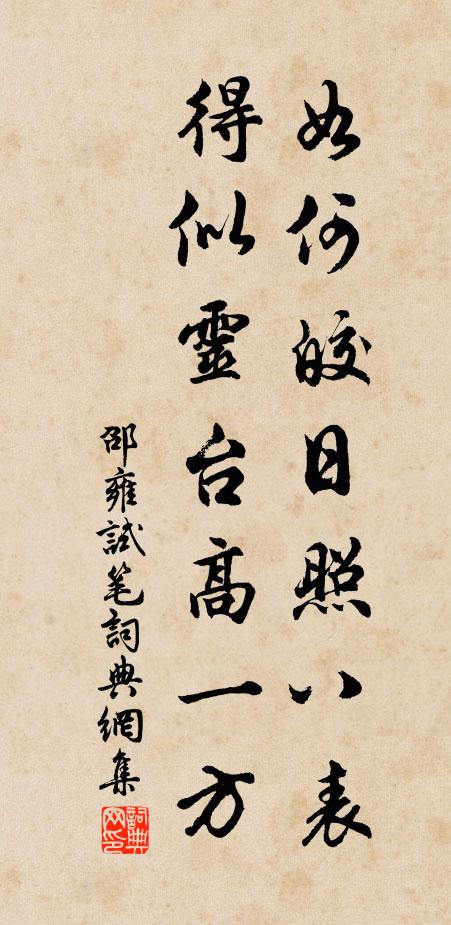 如何皎日照八表
得似靈台高一方
邵雍試笔詞典網集
詞典网印